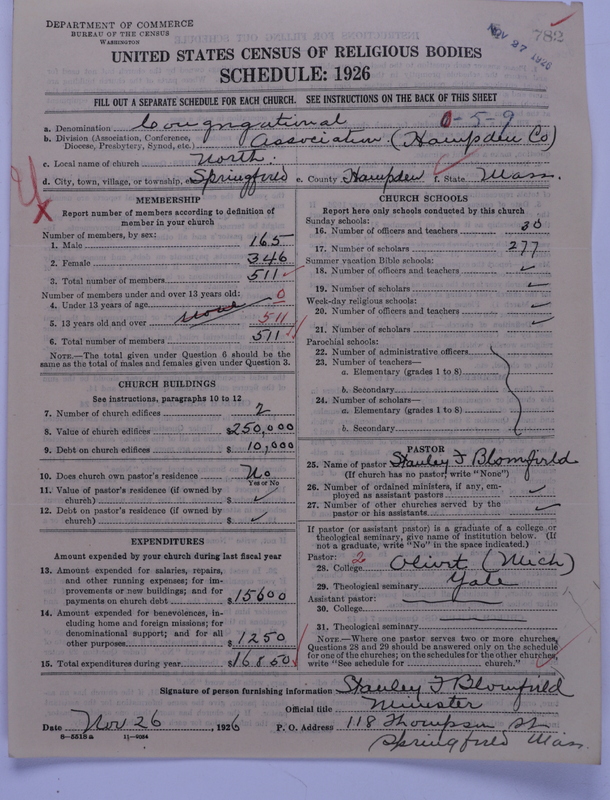 DEPARTMENT OF COMMERCE
BUREAU OF THE CENSUS
WASHINGTON
NOV 27 1926
782
UNITED STATES CENSUS OF RELIGIOUS BODIES
SCHEDULE: 1926
FILL OUT A SEPARATE SCHEDULE FOR EACH CHURCH. SEE INSTRUCTIONS ON THE BACK OF THIS SHEET
a. Denomination Congregational 0-5-9
b. Division (Association, Conference, Diocese, Presbytery, Synod, etc.) Association (Hampden Co)
c. Local name of church North.
d. City, town, village, or township, etc. Springfield e. County Hampden f. State Mass.
MEMBERSHIP
Report number of members according to definition of member in your church
Number of members, by sex:
1. Male 165
2. Female 346
3. Total number of members 511
Number of members under and over 13 years old:
4. Under 13 years of age none 0
5. 13 years old and over 511
6. Total number of members 511
NOTE.—The total given under Question 6 should be the same as the total of males and females given under Question 3.
CHURCH BUILDINGS
See instructions, paragraphs 10 to 12
7. Number of church edifices 2
8. Value of church edifices $250,000
9. Debt on church edifices $10,000
10. Does church own pastor's residence No
Yes or No
11. Value of pastor's residence (if owned by church) $ ✓
12. Debt on pastor's residence (if owned by church) $ ✓
EXPENDITURES
Amount expended by your church during last fiscal year
13. Amount expended for salaries, repairs, and other running expenses; for improvements or new buildings; and for payments on church debt $15600
14. Amount expended for benevolences, including home and foreign missions; for denominational support; and for all other purposes $1250
15. Total expenditures during year $16850
CHURCH SCHOOLS
Report here only schools conducted by this church
Sunday schools:
16. Number of officers and teachers 30
17. Number of scholars 277
Summer vacation Bible schools:
18. Number of officers and teachers ✓
19. Number of scholars ✓
Week-day religious schools:
20. Number of officers and teachers ✓
21. Number of scholars ✓
Parochial schools:
22. Number of administrative officers
23. Number of teachers—
a. Elementary (grades 1 to 8)
b. Secondary
24. Number of scholars—
a. Elementary (grades 1 to 8)
b. Secondary
PASTOR
25. Name of pastor Stanley F Blomfield
(If church has no pastor, write "None")
26. Number of ordained ministers, if any, employed as assistant pastors ✓
27. Number of other churches served by the pastor or his assistants ✓
If pastor (or assistant pastor) is a graduate of a college or theological seminary, give name of institution below. (If not a graduate, write "No" in the space indicated.)
Pastor: 2
28. College Olivet (Mich)
29. Theological seminary Yale
Assistant pastor:
30. College
31. Theological seminary
NOTE.—Where one pastor serves two or more churches, Questions 28 and 29 should be answered only on the schedule for one of the churches; on the schedules for the other churches, write "See schedule for church."
Signature of person furnishing information Stanley F Blomfield
Official title Minister
Date Nov 26, 1926 P. O. Address 118 Thompson St
Springfield Mass.
8-5518a 11-9084